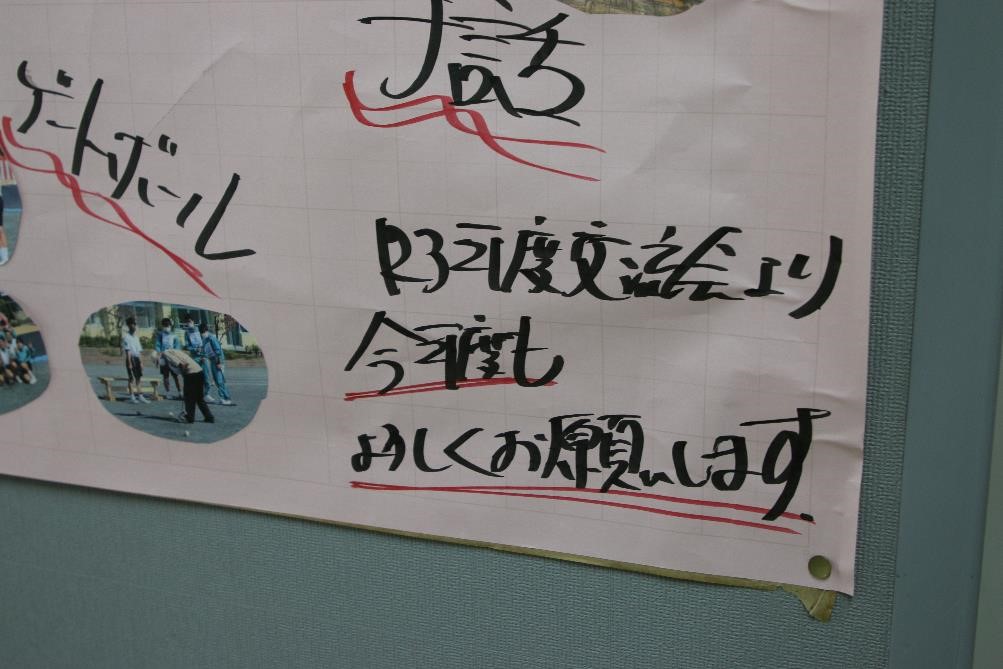 手話
ゲートボール
R3年度交流会より
今年度も
よろしくお願いします.